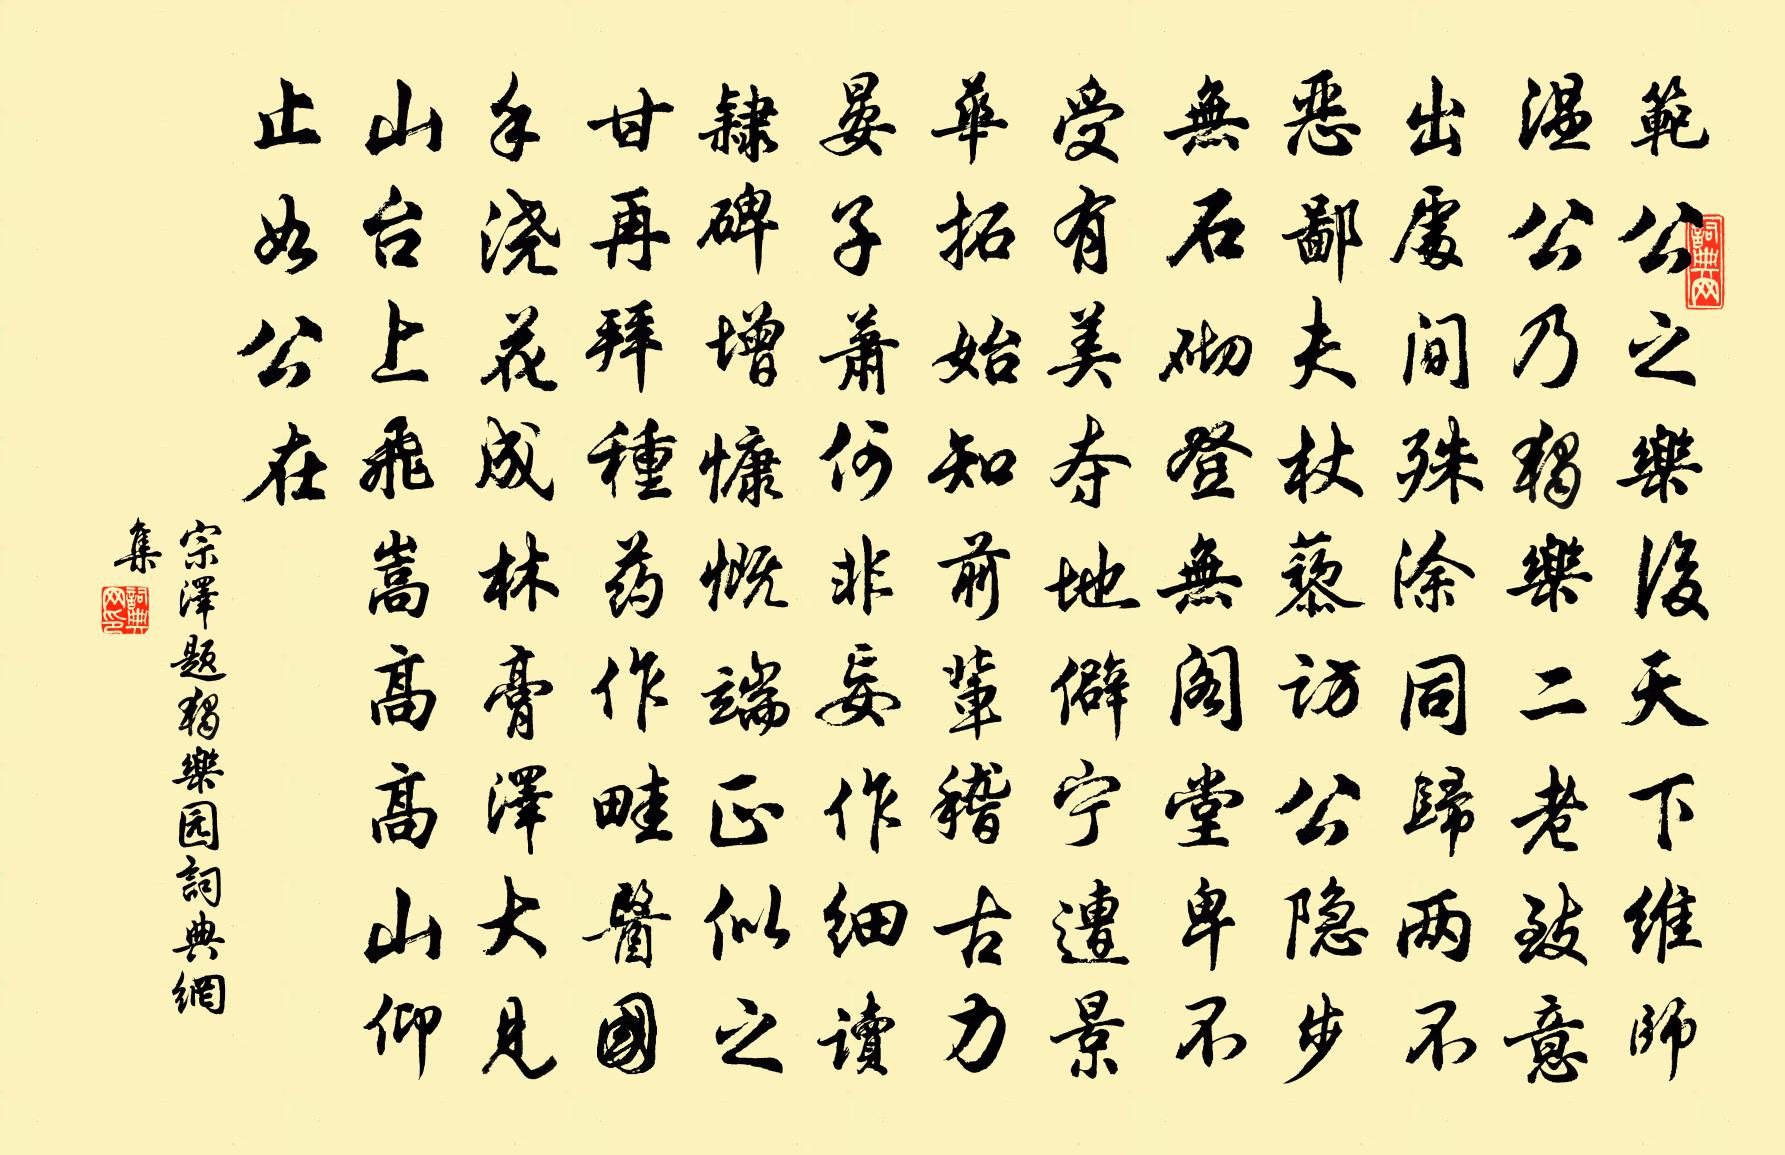 範公之樂後天下維師
温公乃獨樂二老致意
出處間殊涂同歸两不
惡鄙夫杖藜訪公隐步
無石砌登無阁堂卑不
受有美夺地僻宁遭景
華拓始知前輩稽古力
晏子萧何非妄作细讀
隸碑增慷慨端正似之
甘再拜種药作畦醫國
手浇花成林膏澤大見
山台上飛嵩高高山仰
止如公在
宗澤题獨樂园詞典網
集
詞典网
詞典网印